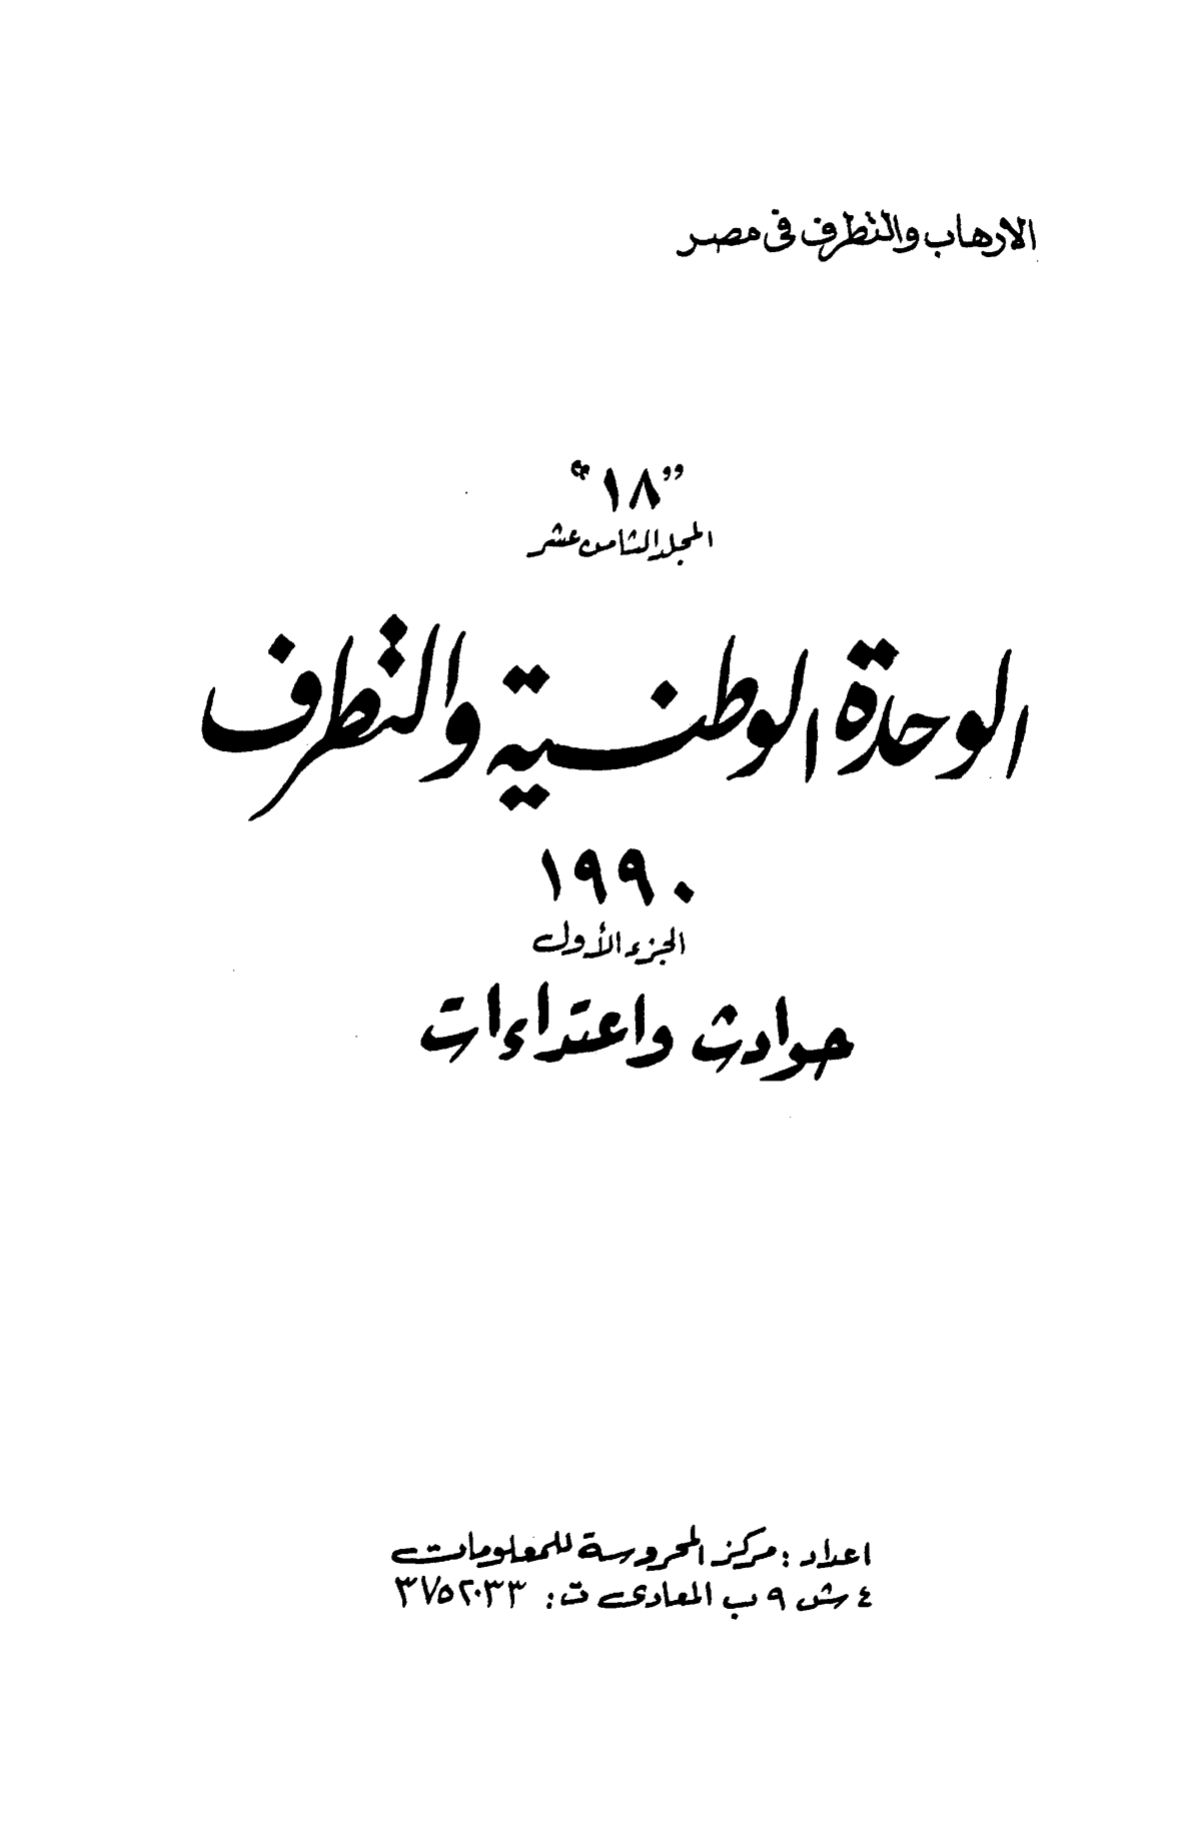 الارهاب والتطرف فى مصر
"١٨"
المجلد الثامن عشر
الوحدة الوطنية والتطرف
١٩٩٠
الجزء الأول
حوادث واعتداءات
اعداد : مركز المحروسة للمعلومات
٤ ش ٩ ب المعادى ت : ٣٧٥٢٠٣٣